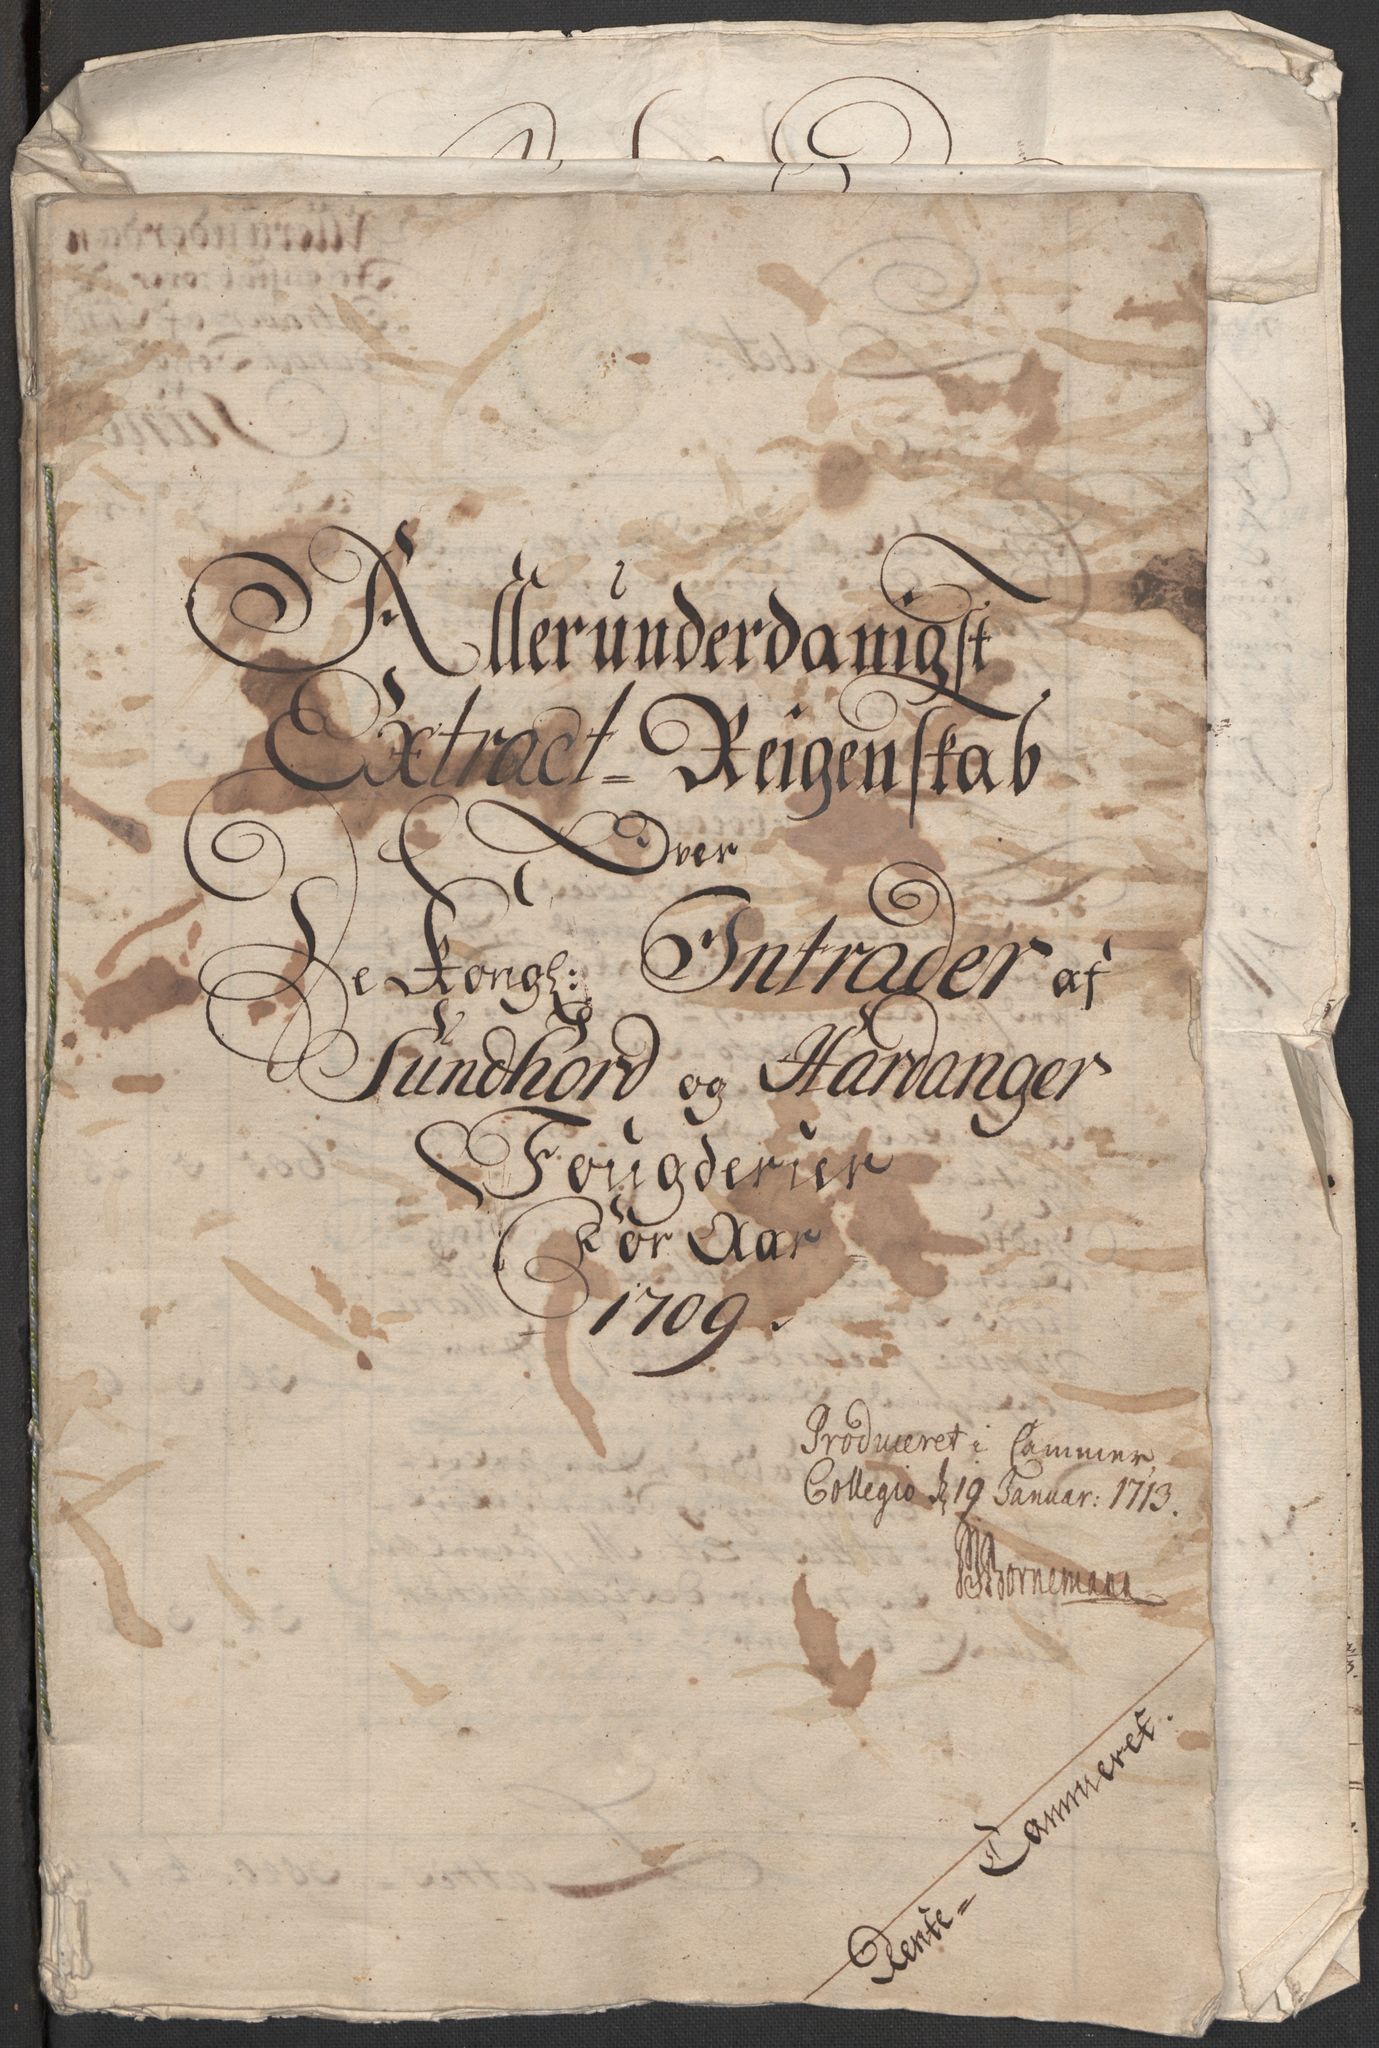 Allerunderdanigst
Extract-Reigenskab
Over
De Kongl: Intrader af
Sundhord og Hardanger
Fougderier
For Aar
1709.
Produceret i Cammer
Collegio d 19 Januar: 1713.
Bornemann
Rente-Cammeret.